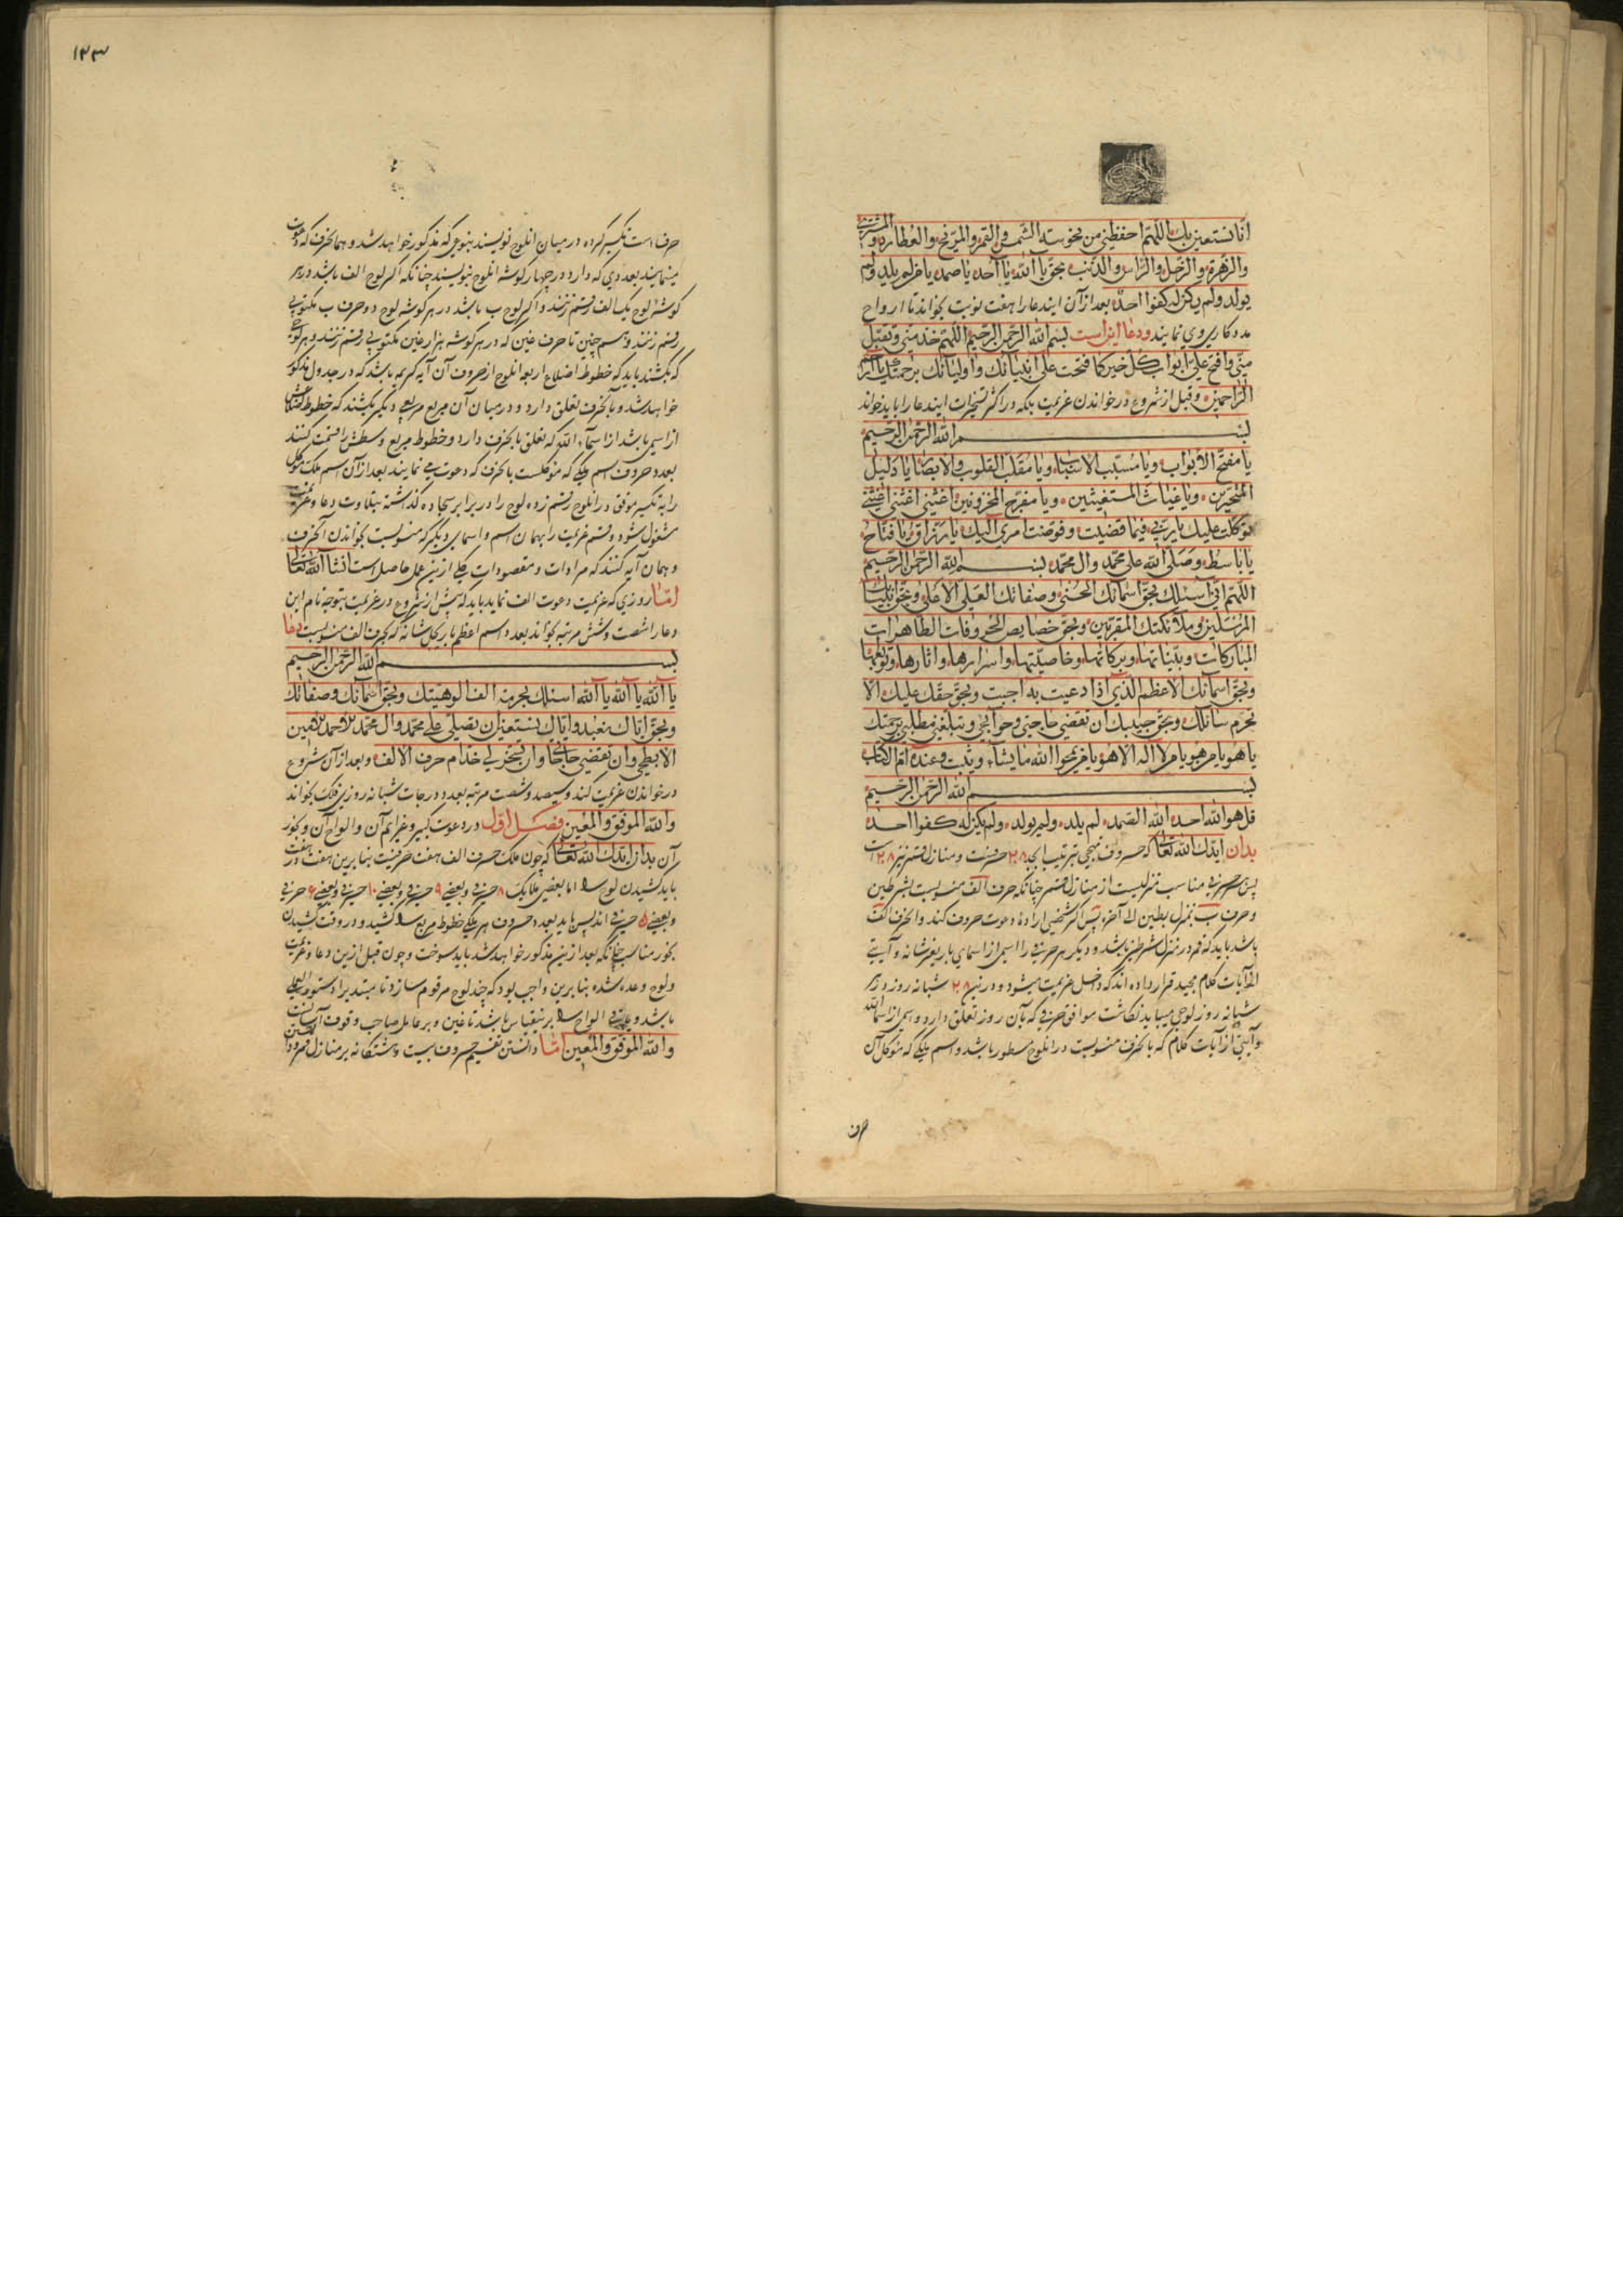 انا نستعین بك اللهم احفظنی من نحوسة الشمس والقمر والمریخ والعطارد والمشتری
والزهرة والزحل والراس والذنب بحق یا الله یا احد یا صمد یا من لم یلد ولم
یولد ولم یکن له کفوا احد بعد از آن ایندعا را هفت نوبت بخواند تا ارواح
مدد کاری وی نمایند ودعا این است بسم الله الرحمن الرحیم اللهم خذ منی وتقبل
منی وافتح علی ابواب کل خیر کما فتحت علی انبیائك واولیائك برحمتك یا ارحم
الراحمین وقبل از شروع در خواندن عزیمت بلکه در اکثر تسخیرات ایندعا را باید خواند
بسم الله الرحمن الرحیم
یا مفتح الابواب ویا مسبب الاسباب ویا مقلب القلوب والابصار یا دلیل
المتحیرین ویا غیاث المستغیثین ویا مفرح المحزونین اغثنی اغثنی اغثنی
توکلت علیك یا ربی فیما قضیت وفوضت امری الیك یا رزاق یا فتاح
یا باسط وصلی الله علی محمد وال محمد بسم الله الرحمن الرحیم
اللهم انی اسئلك بحق اسمائك الحسنی وصفاتك العلی الاعلی وبحق انبیائك
المرسلین وملائکتك المقربین وبحق خصایص الحروفات الطاهرات
المبارکات وبیناتها وبرکاتها وخاصیتها واسرارها واثارها
وبحق اسمائك الاعظم الذی اذا دعیت به اجبت وبحق حقك علیك الا
تحرم سائلك وبحق حبیبك ان تقضی حاجتی وحوائجی وتبلغنی مطلبی برحمتك
یا هو یا من هو یا من لا اله الا هو یا من یمحوا الله ما یشاء ویثبت وعنده ام الکتاب
بسم الله الرحمن الرحیم
قل هو الله احد الله الصمد لم یلد ولم یولد ولم یکن له کفوا احد
بدان ایدك الله تعالی که حروف تهجی بترتیب ابجد ۲۸ حرفست ومنازل قمر نیز ۲۸ است
پس هر حرفی مناسب منزلیست از منازل قمر چنانکه حرف الف منسوبست بشرطین
و حرف ب بمنزل بطین الی آخره پس اگر شخصی اراده دعوت حروف کند و آنحرف الف
باشد باید که قمر در منزل شرطین باشد و دیگر هر حرفی را اسمی از اسمای باریتعالی شانه و آیتی
از آیات کلام مجید قرار داده اند که داخل عزیمت میشود و درین ۲۸ شبانه روز در هر
شبانه روز لوحی میباید نگاشت موافق حرفی که بآن روز تعلق دارد و اسمی از اسماء الله
و آیتی از آیات کلام که بآنحرف منسوبست در آنلوح مسطور باشد و اسم ملکی که موکل آن
حرف
۱۲۳
حرف است تکسیر کرده در میان آنلوح نویسند بنوعی که مذکور خواهد شد و همانحرف که دعوت
مینمایند بعددی که دارد در چهار گوشه آنلوح بنویسند چنانکه اگر لوح الف باشد در هر
گوشه لوح یك الف رقم زنند و اگر لوح ب باشد در هر گوشه لوح دو حرف ب مکتوبی
رقم زنند و همچنین تا حرف غین که در هر گوشه هزار غین مکتوبی رقم زنند و هر لوحی
که بکشند باید که خطوط اضلاع اربعه آنلوح از حروف آن آیه کریمه باشد که در جدول مذکور
خواهد شد و بآنحرف تعلق دارد و در میان آن مربع مربعی دیگر بکشند که خطوط اضلاعش
از اسمی باشد از اسماء الله که تعلق بآنحرف دارد و خطوط مربع وسطش را قسمت کنند
بعدد حروف اسم ملکی که موکلست بآنحرف که دعوت می نمایند بعد از آن اسم ملك موکل
را به تکسیر موفق در آنلوح رقم زده لوح را در برابر سجاده گذاشته بتلاوت دعا و عزیمت
مشغول شود و قسم عزیمت را بهمان اسم و اسمای دیگر که منسوبست بخواندن آنحرف
و همان آیه کنند که مرادات و مقصودات کلی ازین عمل حاصل است انشا الله تعالی
اما روزی که عزیمت دعوت الف نماید باید که پیش از شروع در عزیمت بتوجه تام این
دعا را شصت و شش مرتبه بخواند بعدد اسم اعظم باری جل شانه که بحرف الف منسوبست دعا
بسم الله الرحمن الرحیم
یا الله یا الله یا الله اسئلك بحرمة الف الوهیتك وبحق اسمائك وصفاتك
وبحق ایاك نعبد وایاك نستعین ان تصلی علی محمد وال محمد
وان تقضی حاجاتی وان تسخر لی خدام حرف الالف وبعد از آن شروع
در خواندن عزیمت کند و سیصد و شصت مرتبه بعدد درجات شبانه روزی فلك بخواند
والله الموفق والمعین فصل اول در دعوت کبیر و عزایم آن و الواح آن و بخور
آن بدان ایدك الله تعالی که چون ملك حرف الف هفت حرفیست بنابرین هفت در هفت
باید کشیدن لوح را اما بعضی ملایك ۸ حرفی و بعضی ۹ حرفی و بعضی ۱۰ حرفی و بعضی ۶ حرفی
و بعضی ۵ حرفی اند پس باید بعدد حروف هر ملکی خطوط مربع را کشید و در وقت کشیدن
بخور مناسب چنانکه بعد ازین مذکور خواهد شد باید سوخت و چون قبل ازین دعا و عزیمت
و لوح وعده شده بنابرین واجب بود که چند لوح مرقوم سازد تا مبتدیرا دستور العمل
باشد و باقی الواح را برینقیاس باشد تا غین و بر عامل صاحب وقوف آسانست
والله الموفق والمعین اما دانستن تقسیم حروف بیست و هشتگانه بر منازل قمر